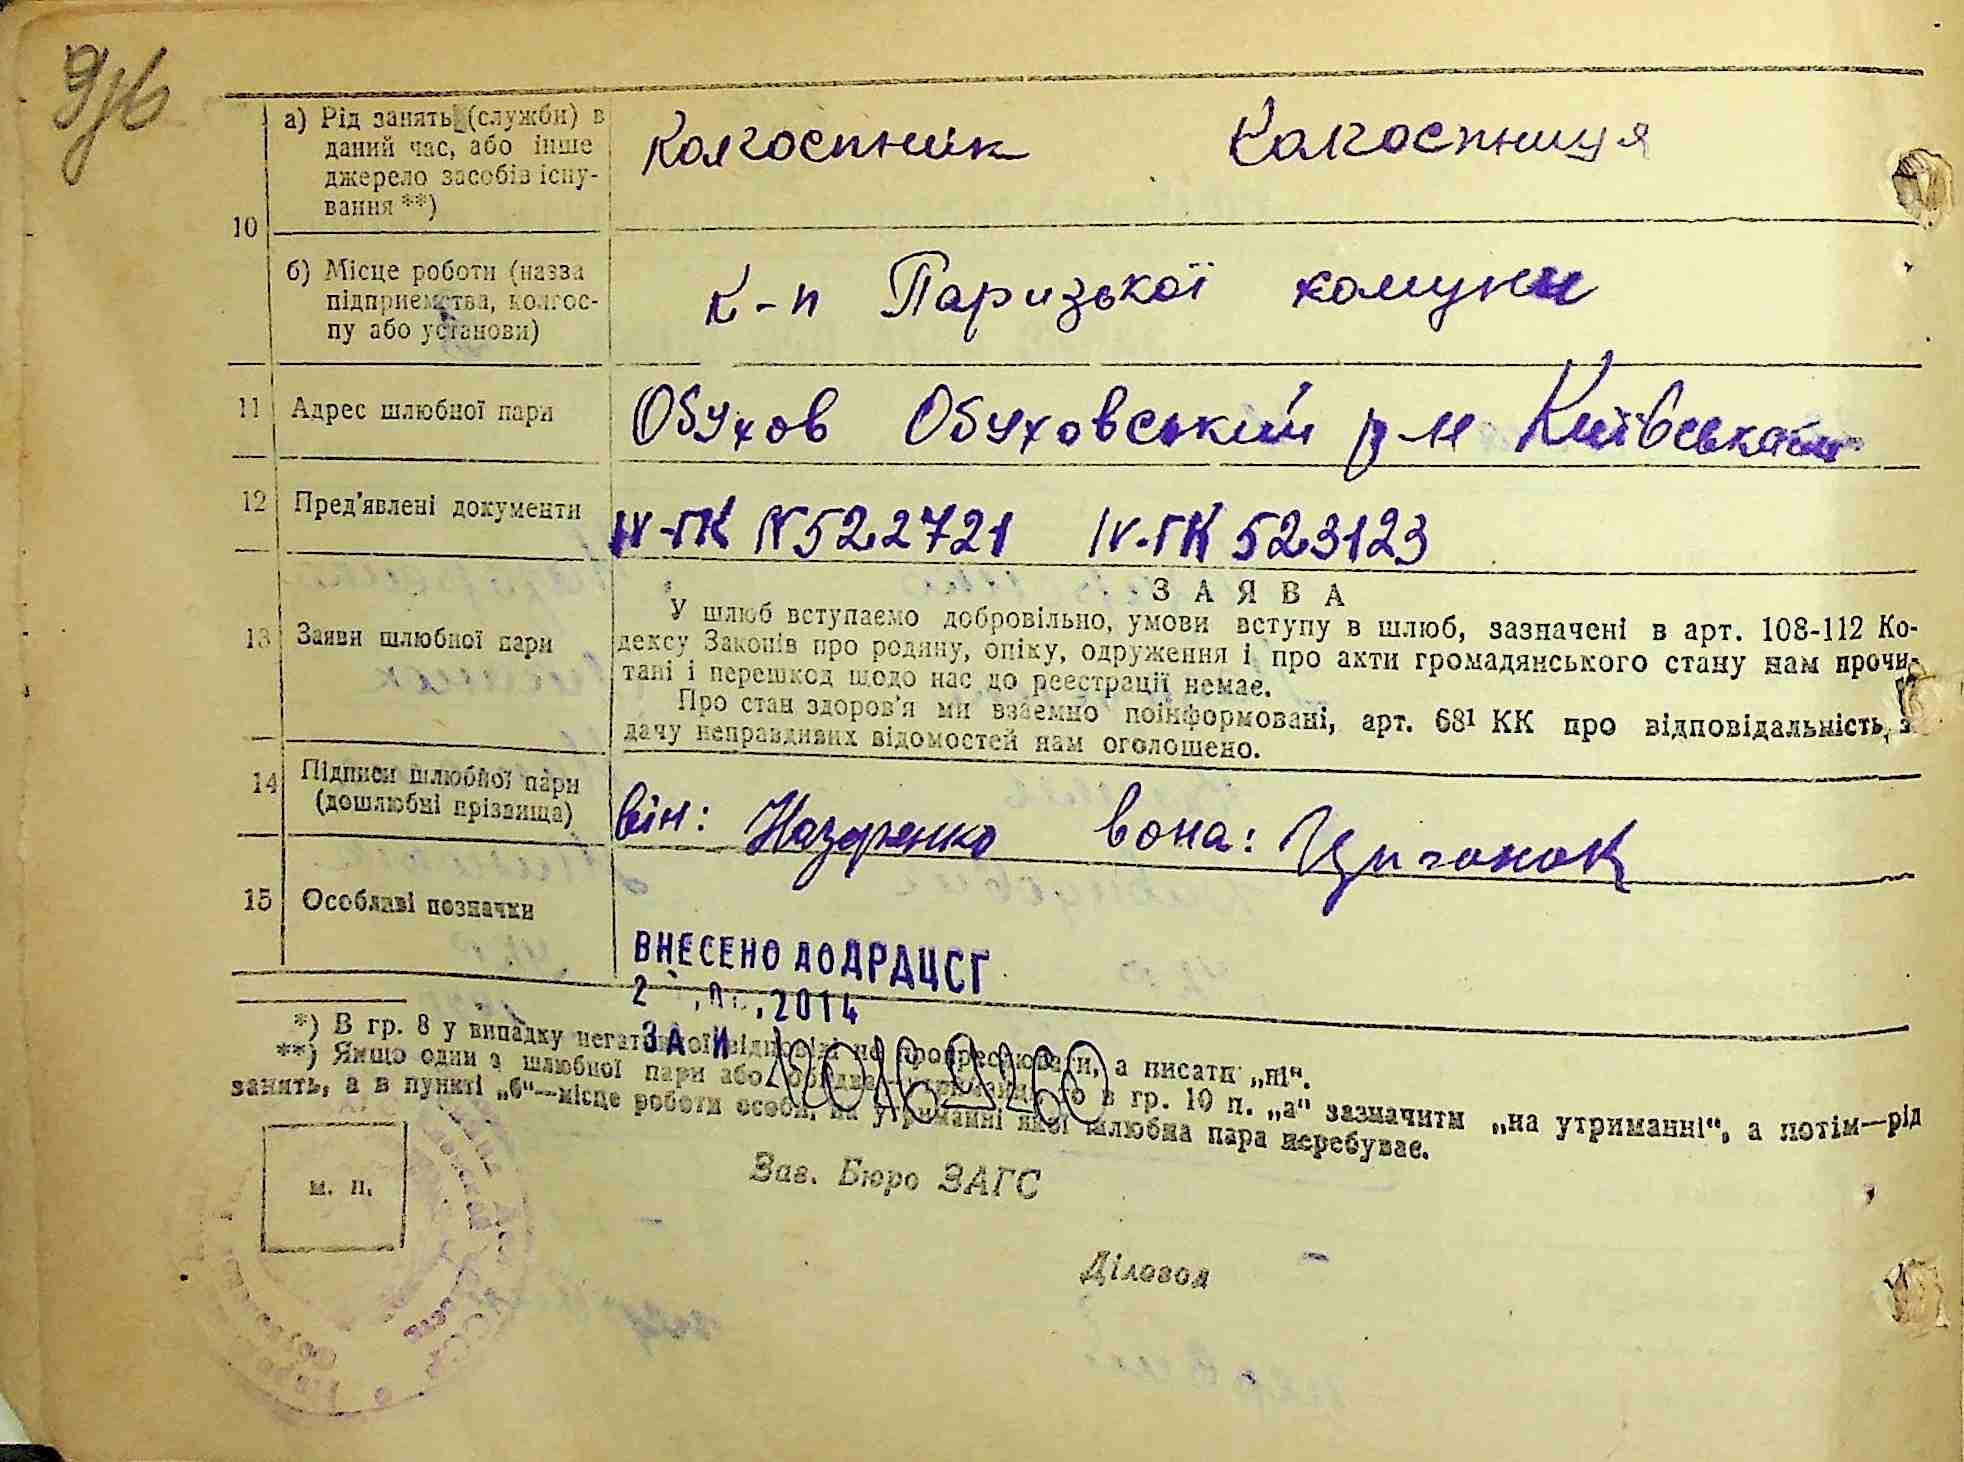 а) Рід занять (служби) в
даний час, або інше
джерело засобів існу-
вання **)
Колгоспник Колгоспниця
10
б) Місце роботи (назва
підприємства, колгос-
пу або установи)
К-п Паризької комуни
11 Адрес шлюбної пари
Обухов Обуховський р-н Київська
12 Пред'явлені документи
IV-ГК N 522721 IV-ГК 523123
13 Заяви шлюбної пари
ЗАЯВА
У шлюб вступаємо добровільно, умови вступу в шлюб, зазначені в арт. 108-112 Ко-
дексу Законів про родину, опіку, одруження і про акти громадянського стану нам прочи-
тані і перешкод щодо нас до реєстрації немає.
Про стан здоров'я ми взаємно поінформовані, арт. 68¹ КК про відповідальність, з
дачу неправдивих відомостей нам оголошено.
14 Підписи шлюбної пари
(дошлюбні прізвища)
він: Назаренко вона: Циганок
15 Особливі позначки
ВНЕСЕНО ДО ДРАЦСГ
2014
ЗА
*) В гр. 8 у випадку негативної відповіді не прокреслювати, а писати „ні“.
**) Якщо один з шлюбної пари або в гр. 10 п. „а“ зазначити „на утриманні“, а потім—рід
занять, а в пункті „б“—місце роботи особи, на утриманні якої шлюбна пара перебуває.
м. п.
Зав. Бюро ЗАГС
Діловод